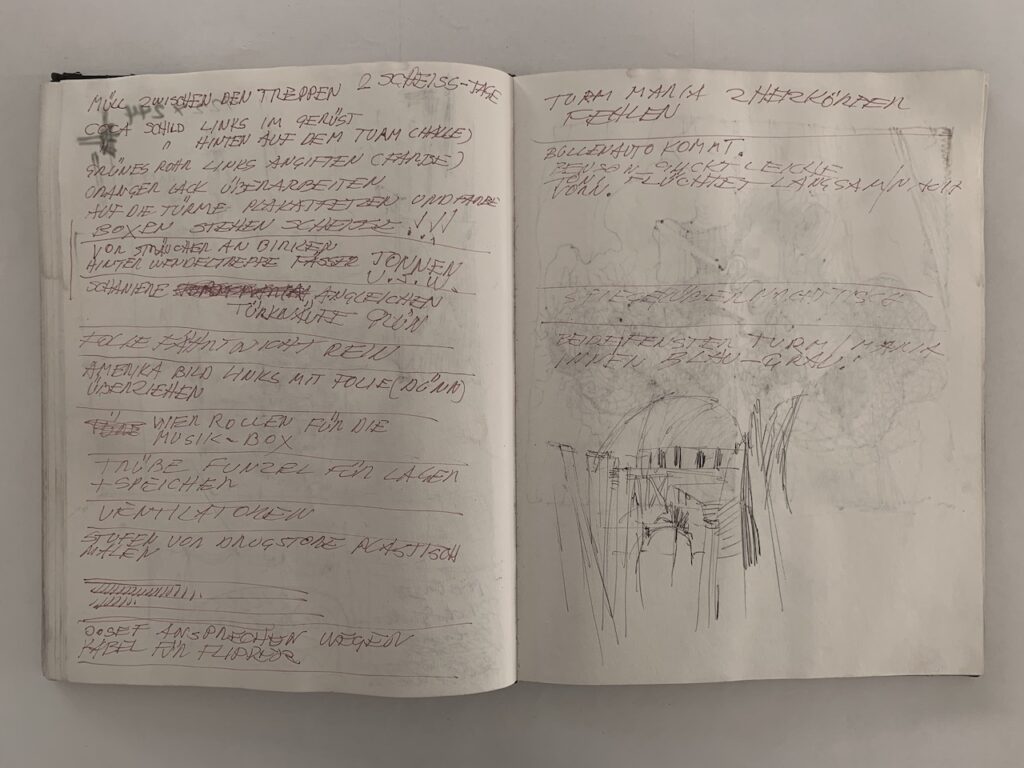 MÜLL ZWISCHEN DEN TREPPEN 2 SCHEISS-TAGE
COCA SCHILD LINKS IM GERÜST
" HINTEN AUF DEM TURM (HALLE)
GRÜNES ROHR LINKS ANGIFTEN (FARBE)
ORANGER LACK ÜBERARBEITEN
AUF DIE TÜRME PLAKATFETZEN UND FARBE
BOXEN STEHEN SCHEISSE!!!
VOR STRÄUCHER AN BIRKEN
HINTER WENDELTREPPE FÄSSER TONNEN
U.S.W.
SCHANIERE ANGLEICHEN
TÜRKNÄUFE GRÜN
FOLIE FÄHRT NICHT REIN
AMERIKA BILD LINKS MIT FOLIE (DÜNN)
ÜBERZIEHEN
VIER ROLLEN FÜR DIE
MUSIK-BOX
TRÜBE FUNZEL FÜR LAGER
+ SPEICHER
VENTILATOREN
STUFEN VOR DRUGSTORE PLASTISCH
MALEN
JOSEF ANSPRECHEN WEGEN
KABEL FÜR FLIPPER
TURM MARIA 2 HEIZKÖRPER
FEHLEN
BULLENAUTO KOMMT.
GUCKT LEICHE
FLÜCHTET LANGSAM NACH
VORN.
SPIEGEL ÜBER
FENSTER TURM/MARIA
INNEN BLAU-GRAU!